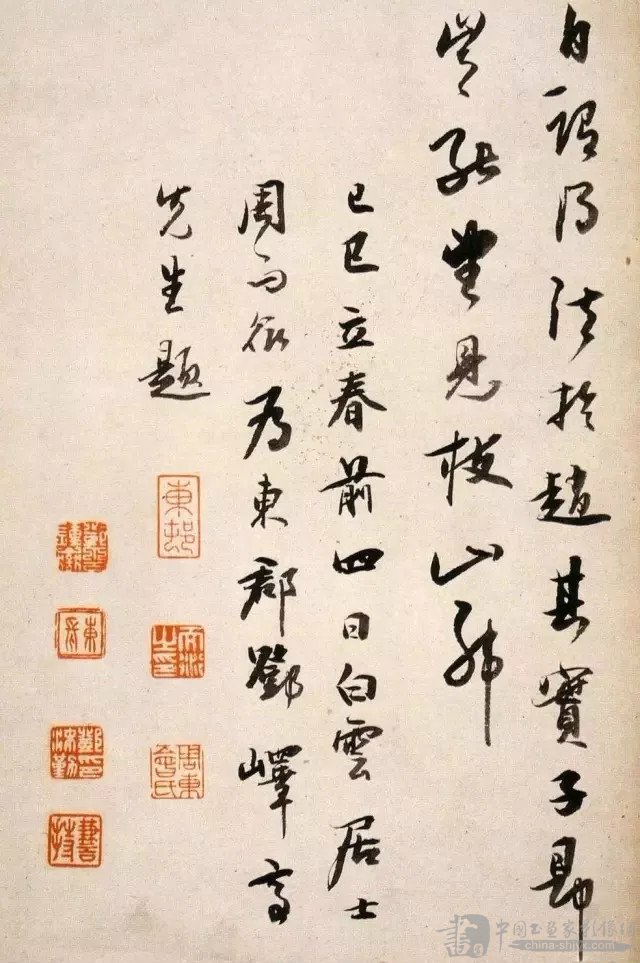 自謂得法於趙其實子昂
豈能望見枝山耶
己巳立春前四日白雲居士
周而衍為東郡鄧嶧亭
先生題
東邨
中国书画家影像网
china-shjyx.com